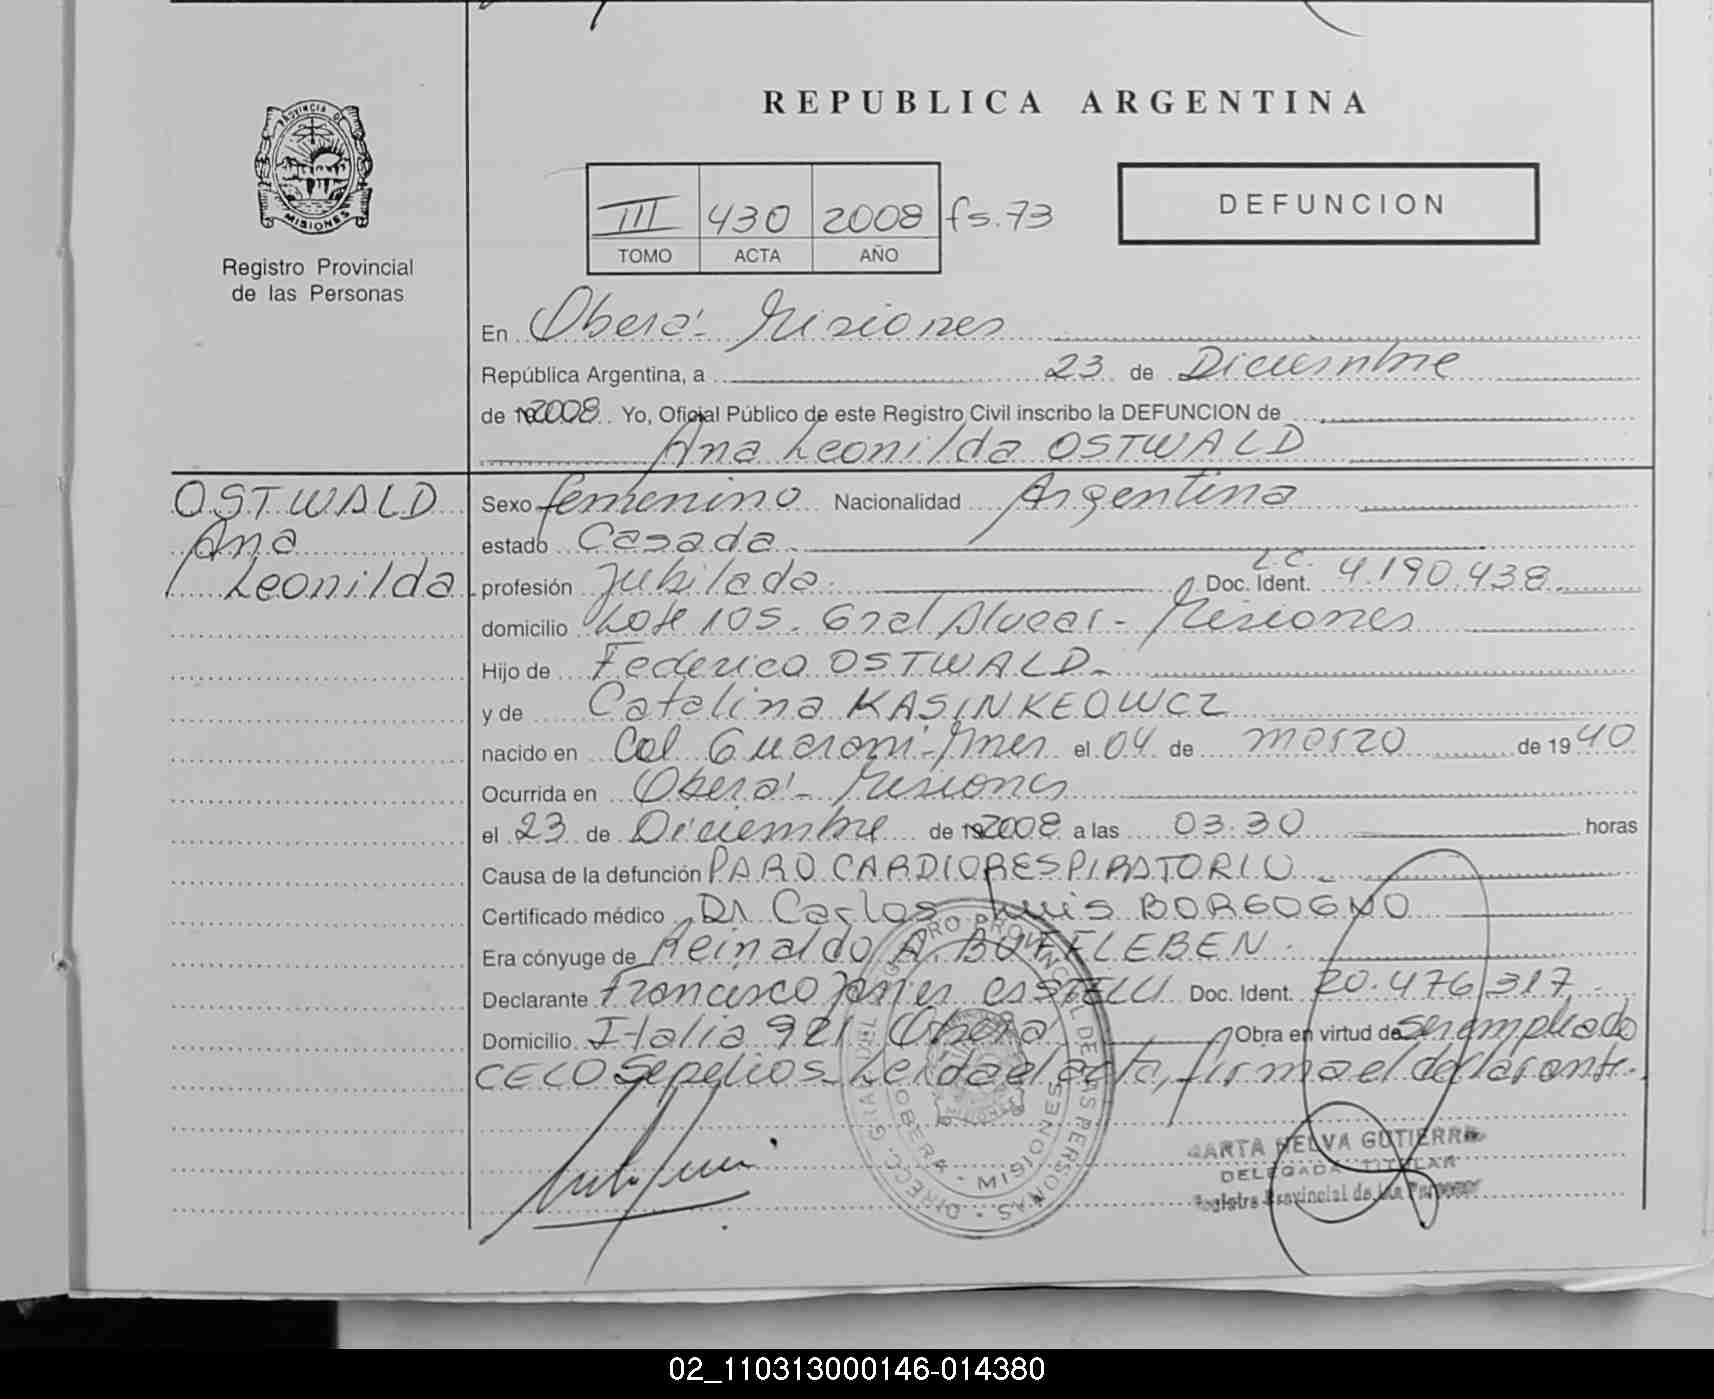 PROVINCIA DE
MISIONES
Registro Provincial
de las Personas
REPUBLICA ARGENTINA
III 430 2008 fs. 73
TOMO ACTA AÑO
DEFUNCION
En Oberá - Misiones
República Argentina, a 23 de Diciembre
de 2008 Yo, Oficial Público de este Registro Civil inscribo la DEFUNCION de
Ana Leonilda OSTWALD
OSTWALD
Ana
Leonilda
Sexo femenino Nacionalidad Argentina
estado Casada
profesión Jubilada L.C. Doc. Ident. 4.190.438
domicilio Lote 105. Gral Alvear - Misiones
Hijo de Federico OSTWALD
y de Catalina KASINKEOWCZ
nacido en Col Guarani - Mnes el 04 de marzo de 1940
Ocurrida en Oberá - Misiones
el 23 de Diciembre de 2008 a las 03:30 horas
Causa de la defunción PARO CARDIORESPIRATORIO
Certificado médico Dr Carlos Luis BORGOGNO
Era cónyuge de Reinaldo A. BUFFLEBEN
Declarante Francisco Javier Doc. Ident. 20.476.317
Domicilio Italia 921 Oberá Obra en virtud de ser empleado
CELO Sepelios - Leida el acta, firma el declarante.
DIRECC. GRAL. DEL REGISTRO PROVINCIAL DE LAS PERSONAS
OBERA - MISIONES
MARTA NELVA GUTIERREZ
DELEGADA TITULAR
Registro Provincial de las Personas
02_110313000146-014380